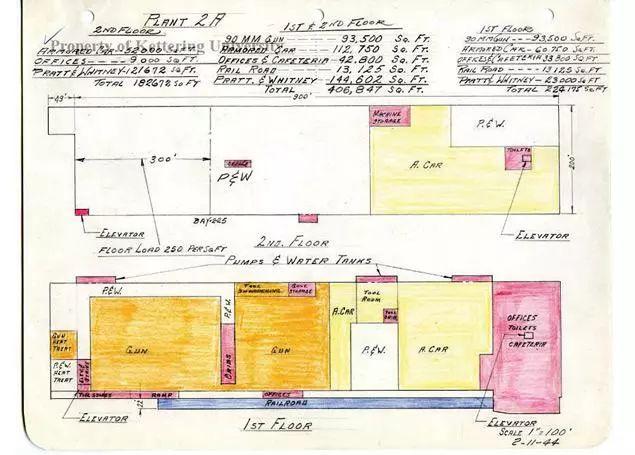 PLANT 2A
2ND FLOOR
ARMORED CAR - 52000 SQ FT.
OFFICES ----- 9,000 SQ FT.
PRATT & WHITNEY - 121672 SQ FT.
TOTAL 182672 SQ FT
1ST & 2ND FLOOR
90 MM GUN ------ 93,500 SQ. FT.
ARMORED CAR ---- 112,750 SQ. FT.
OFFICES & CAFETERIA - 42,800 SQ. FT.
RAIL ROAD ----- 13,125 SQ. FT.
PRATT & WHITNEY ---- 144,602 SQ. FT.
TOTAL 406,847 SQ. FT.
1ST FLOOR
90 MM GUN ---- 93,500 SQ FT.
ARMORED CAR - 60,750 SQ FT.
OFFICES & CAFETERIA 33,800 SQ FT.
RAIL ROAD --- 13125 SQ FT.
PRATT & WHITNEY - 23000 SQ FT.
TOTAL 224175 SQ FT
Property of Kettering University
49'
900'
MACHINE STORAGE
P.&W.
TOILETS
200'
300'
P.&W
A. CAR
BAY-225
ELEVATOR
ELEVATOR
FLOOR LOAD 250 PER SQ FT
2ND. FLOOR
PUMPS & WATER TANKS
P.&W.
P.&W.
TOOL
STORAGE
A. CAR
TOOL ROOM
GUN HEAT TREAT
P.&W. HEAT TREAT
GUN
CRIBS
GUN
P.&W.
A. CAR
OFFICES
TOILETS
CAFETERIA
RAMP
OFFICES
RAILROAD
ELEVATOR
1ST FLOOR
ELEVATOR
SCALE 1"=100'
2-11-44